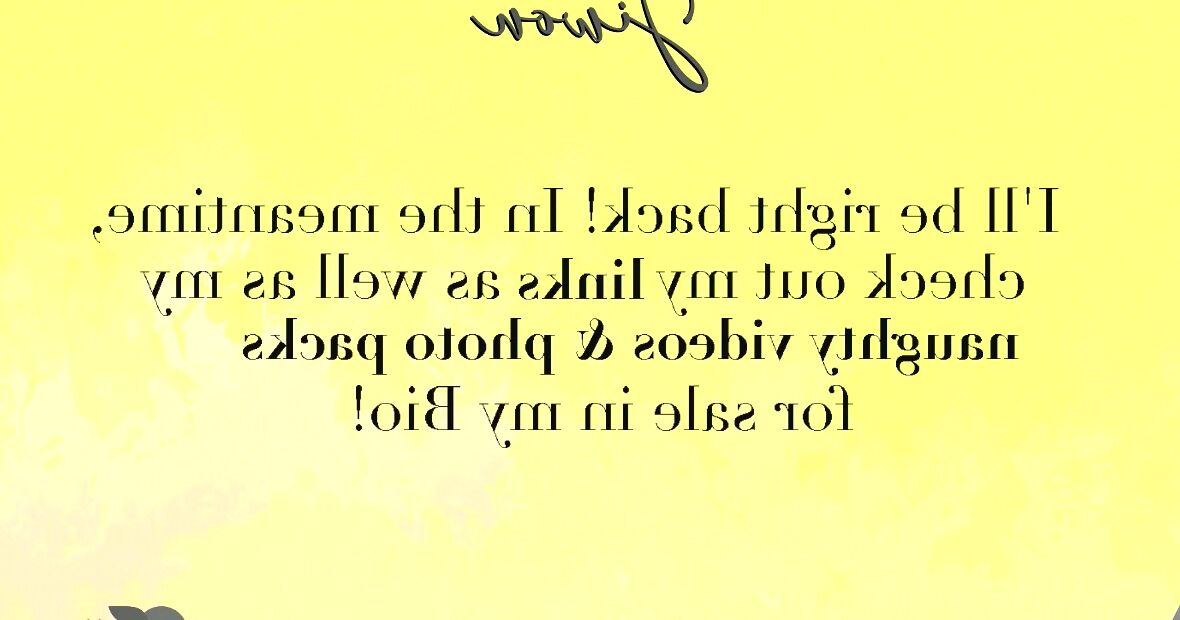 Jiwon
I'll be right back! In the meantime,
check out my links as well as my
naughty videos & photo packs
for sale in my Bio!